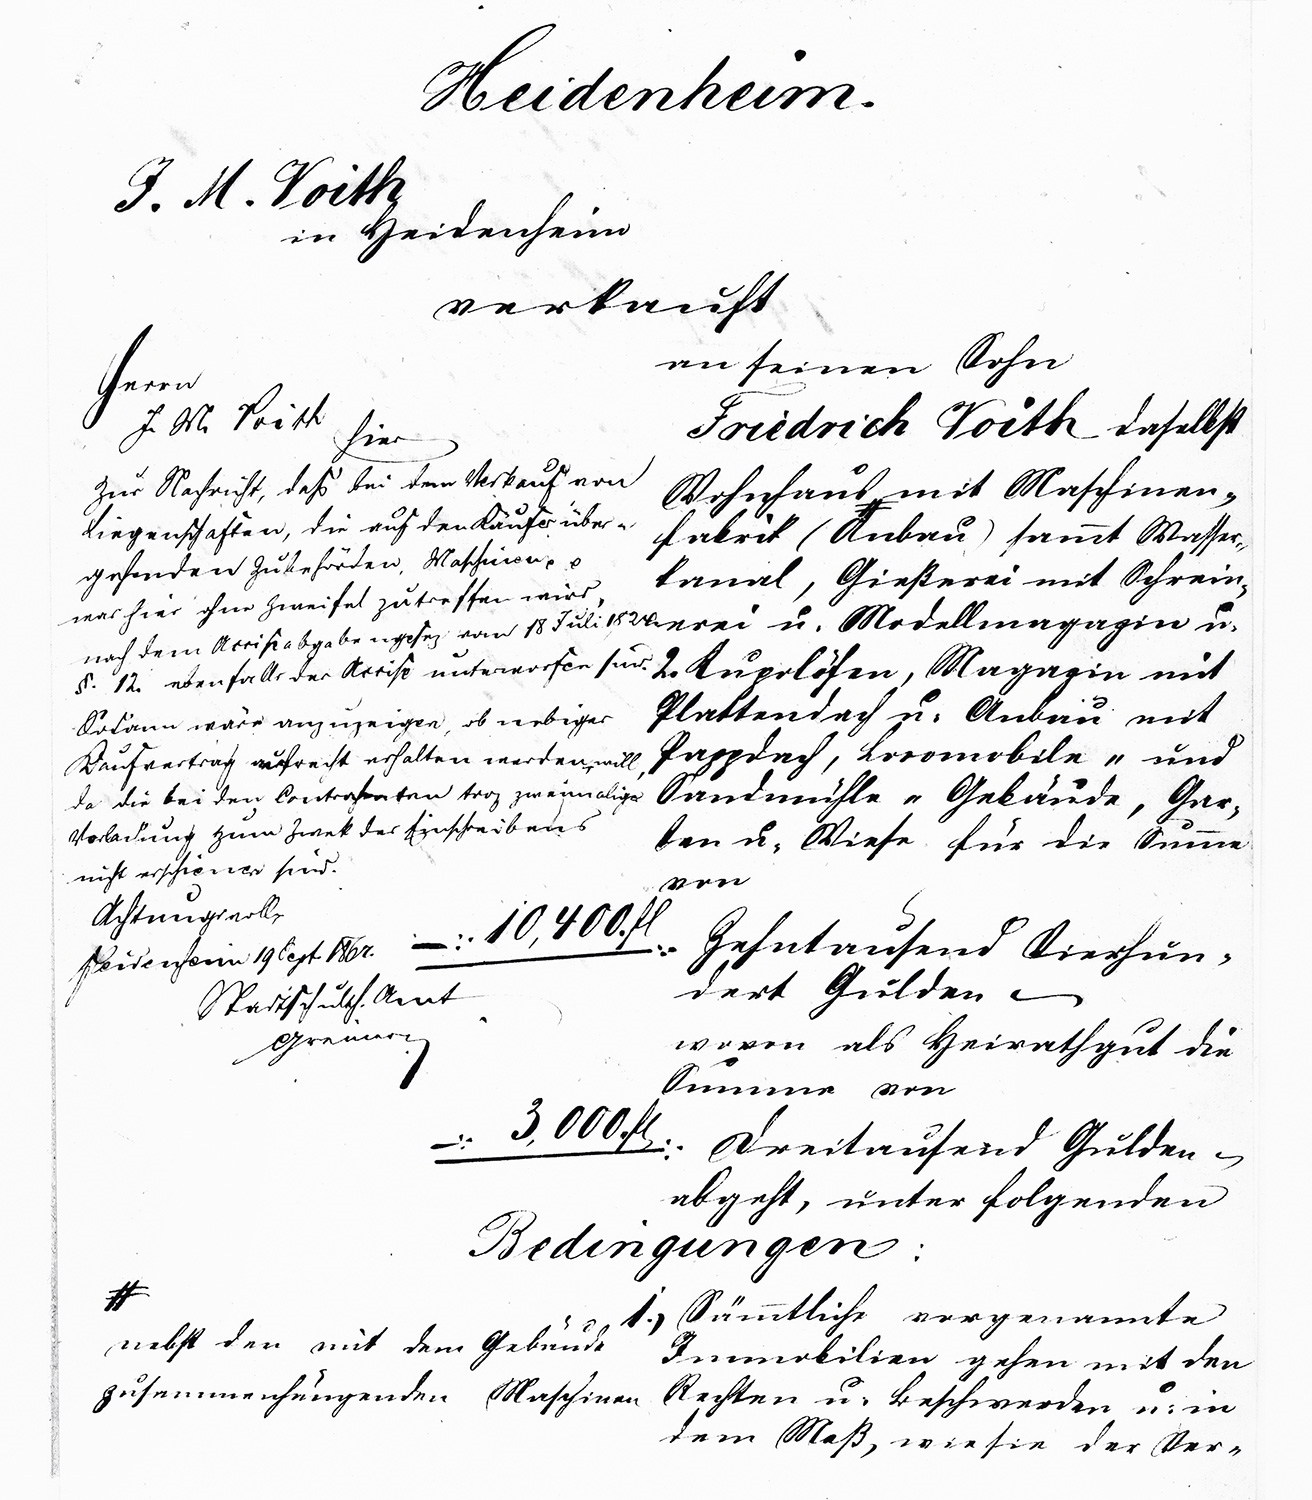 Heidenheim.
J. M. Voith
in Heidenheim
verkauft
an seinen Sohn
Friedrich Voith daselbst
Wohnhaus # mit Maschinen-
fabrik (Anbau) sammt Wasser-
kanal, Gießerei mit Schrein-
erei u. Modellmagazin u.
2. Kupolöfen, Magazin mit
Plattendach u. Anbau mit
Pappdach, Locomobile " und
Sandmühle " Gebäude, Gar-
ten u. Wiese für die Summe
von
—:. 10,400.fl :. Zehntausend Vierhun-
dert Gulden —
wovon als Heirathgut die
Summe von
—:. 3,000.fl :. Dreitausend Gulden —
abgeht, unter folgenden
Bedingungen:
1.) Sämmtliche vorgenannte
Immobilien gehen mit den
Rechten u. Beschwerden u. in
dem Maß, wie sie der Ver-
Herrn
J. M. Voith
hier
Zur Nachricht, daß bei dem Verkauf von
Liegenschaften, die auf den Käufer über-
gehenden Zubehörden, Maschinen
was hier ohne Zweifel zutreffen wird,
nach dem Accisabgabengesez vom 18 Juli 1824
§. 12. ebenfalls der Accise unterworfen sind.
Sodann wäre anzuzeigen, ob nebiger
Kaufvertrag aufrecht erhalten werden will,
da die beiden Contrahenten troz zweimaliger
Vorladung zum Zwek des Einschreibens
nicht erschienen sind.
Achtungsvoll,
Heidenheim 19 Sept.
Stadtschulth. Amt
Greiner
#
nebst den mit dem Gebäude
zusammenhängenden Maschinen